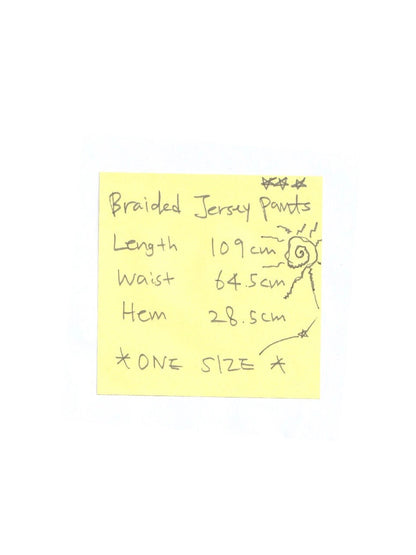 Braided Jersey Pants
Length 109cm
Waist 64.5cm
Hem 28.5cm
*ONE SIZE *